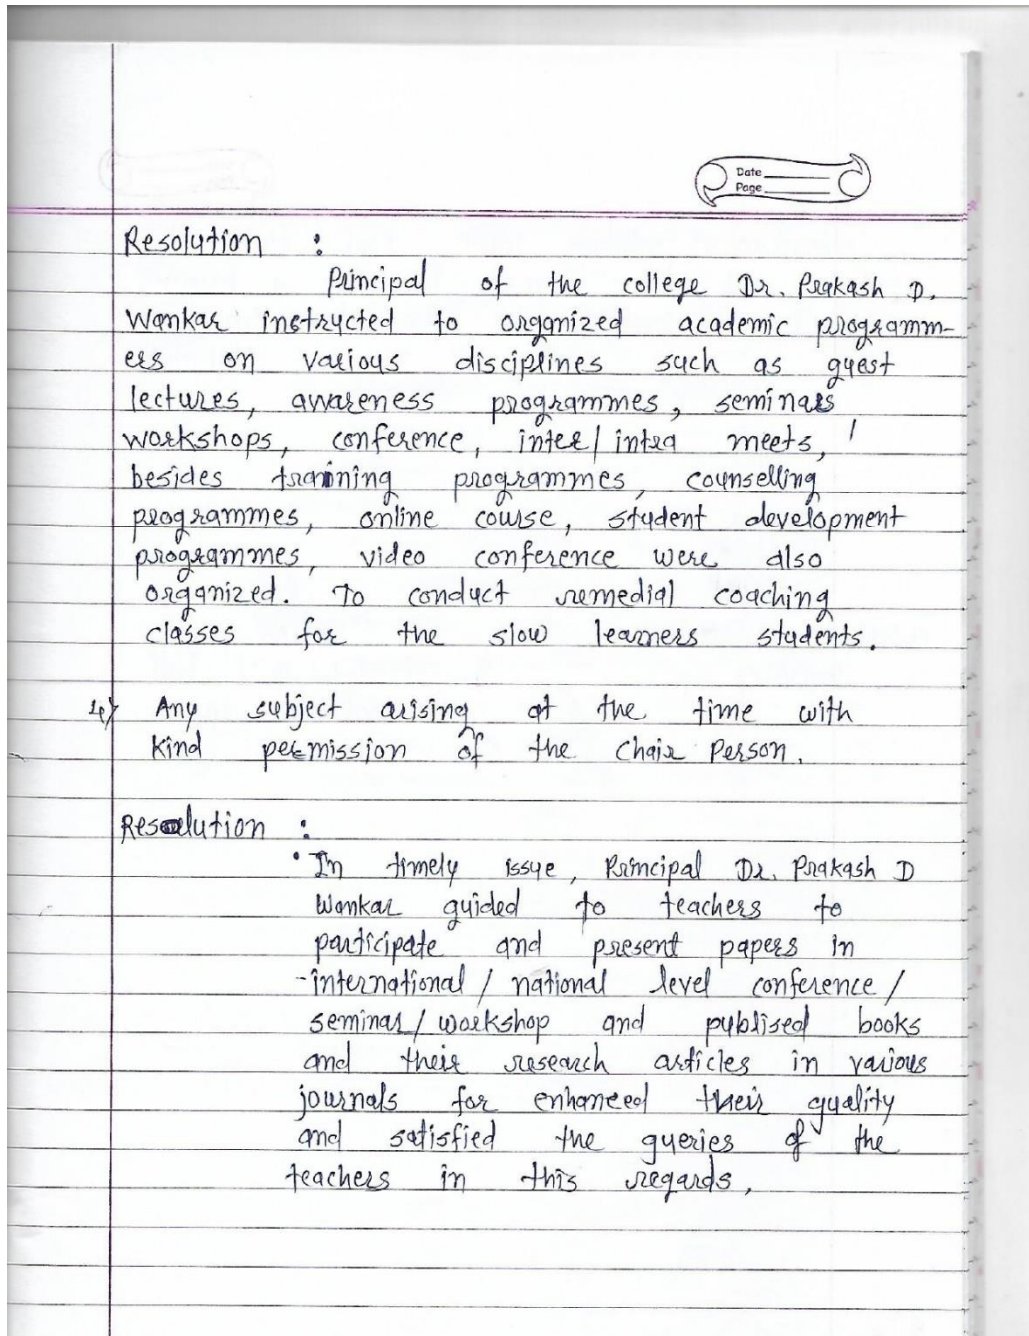 Date
Page
Resolution :
Principal of the college Dr. Prakash D.
Wankar instructed to organized academic programm-
ers on various disciplines such as guest
lectures, awareness programmes, seminars
workshops, conference, inter/intra meets,
besides training programmes, counselling
programmes, online course, student development
programmes, video conference were also
organized. To conduct remedial coaching
classes for the slow learners students.
4) Any subject arising at the time with
kind permission of the Chair Person.
Resolution :
• In timely issue, Principal Dr. Prakash D
Wankar guided to teachers to
participate and present papers in
-international / national level conference /
seminar/workshop and publised books
and their research articles in various
journals for enhanced their quality
and satisfied the queries of the
teachers in this regards,